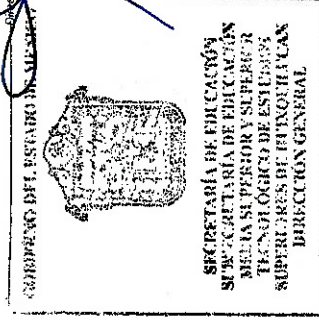 GOBIERNO DEL ESTADO DE MÉXICO
SECRETARÍA DE EDUCACIÓN
SUBSECRETARÍA DE EDUCACIÓN
MEDIA SUPERIOR Y SUPERIOR
TECNOLÓGICO DE ESTUDIOS
SUPERIORES DE HUIXQUILUCAN
DIRECCIÓN GENERAL